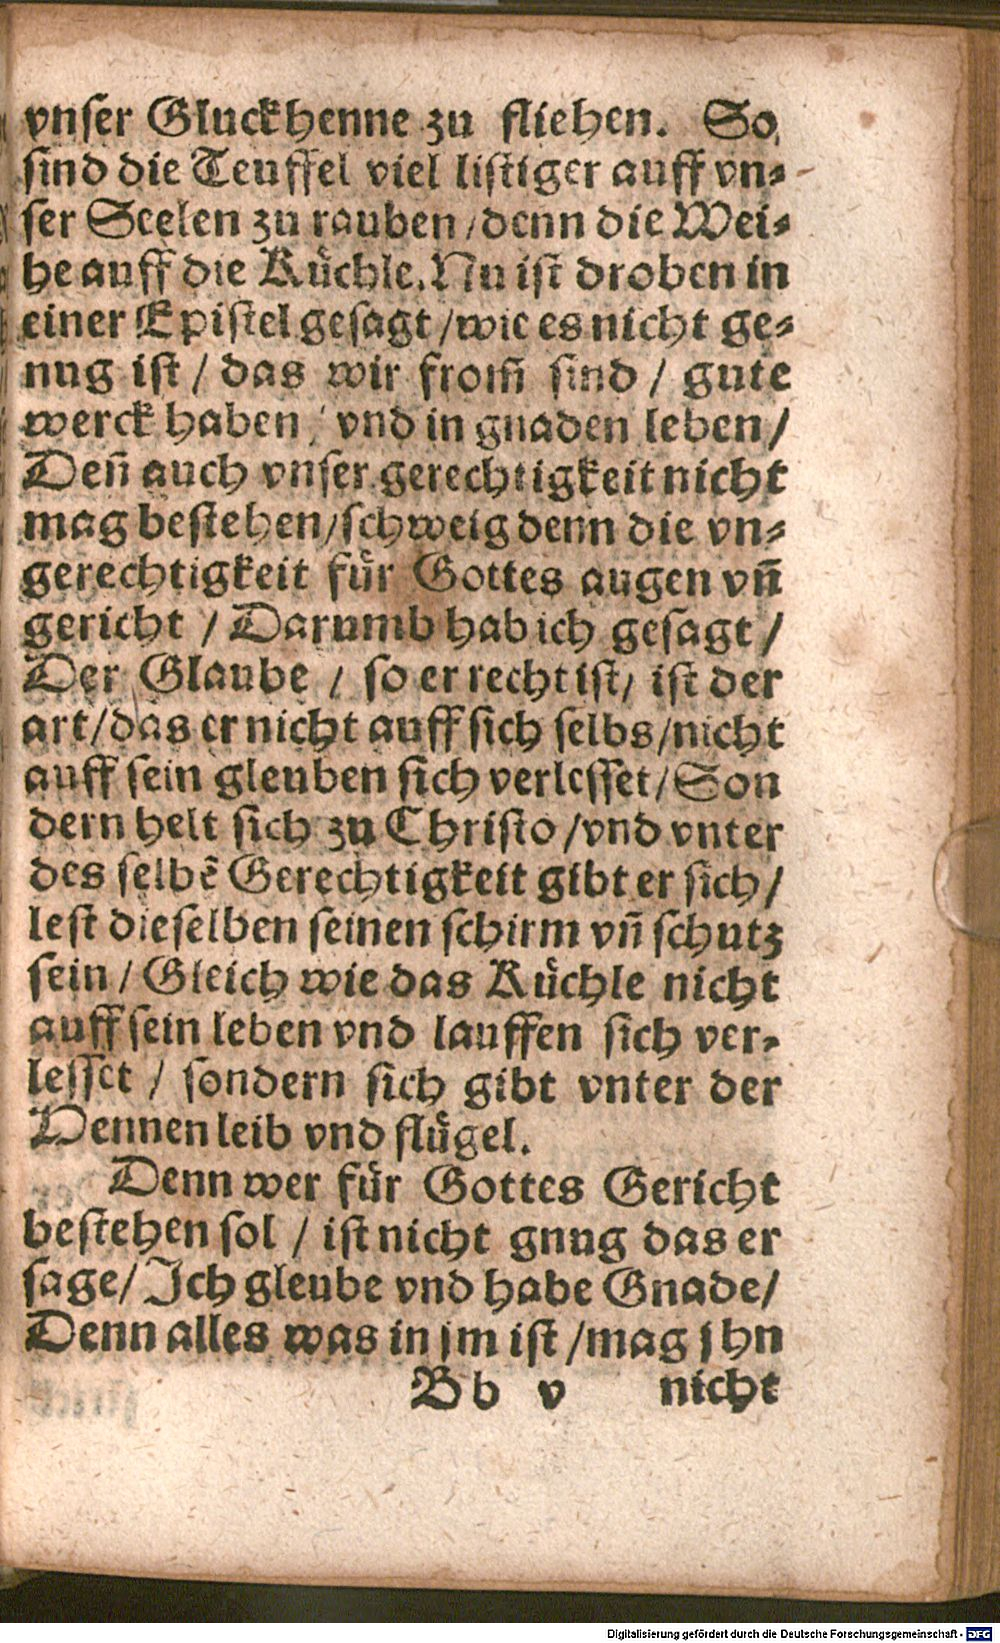 vnser Gluckhenne zu fliehen. So
sind die Teuffel viel listiger auff vn⸗
ser Seelen zu rauben / denn die Wei⸗
he auff die Küchle. Nu ist droben in
einer Epistel gesagt / wie es nicht ge⸗
nug ist / das wir from̃ sind / gute
werck haben / vnd in gnaden leben /
Deñ auch vnser gerechtigkeit nicht
mag bestehen / schweig denn die vn⸗
gerechtigkeit für Gottes augen vñ
gericht / Darumb hab ich gesagt /
Der Glaube / so er recht ist / ist der
art / das er nicht auff sich selbs / nicht
auff sein gleuben sich verlesset / Son
dern helt sich zu Christo / vnd vnter
des selbẽ Gerechtigkeit gibt er sich /
lest dieselben seinen schirm vñ schutz
sein / Gleich wie das Küchle nicht
auff sein leben vnd lauffen sich ver⸗
lesset / sondern sich gibt vnter der
Hennen leib vnd flügel.
Denn wer für Gottes Gericht
bestehen sol / ist nicht gnug das er
sage / Ich gleube vnd habe Gnade /
Denn alles was in jm ist / mag jhn
Bb v nicht
Digitalisierung gefördert durch die Deutsche Forschungsgemeinschaft - DFG